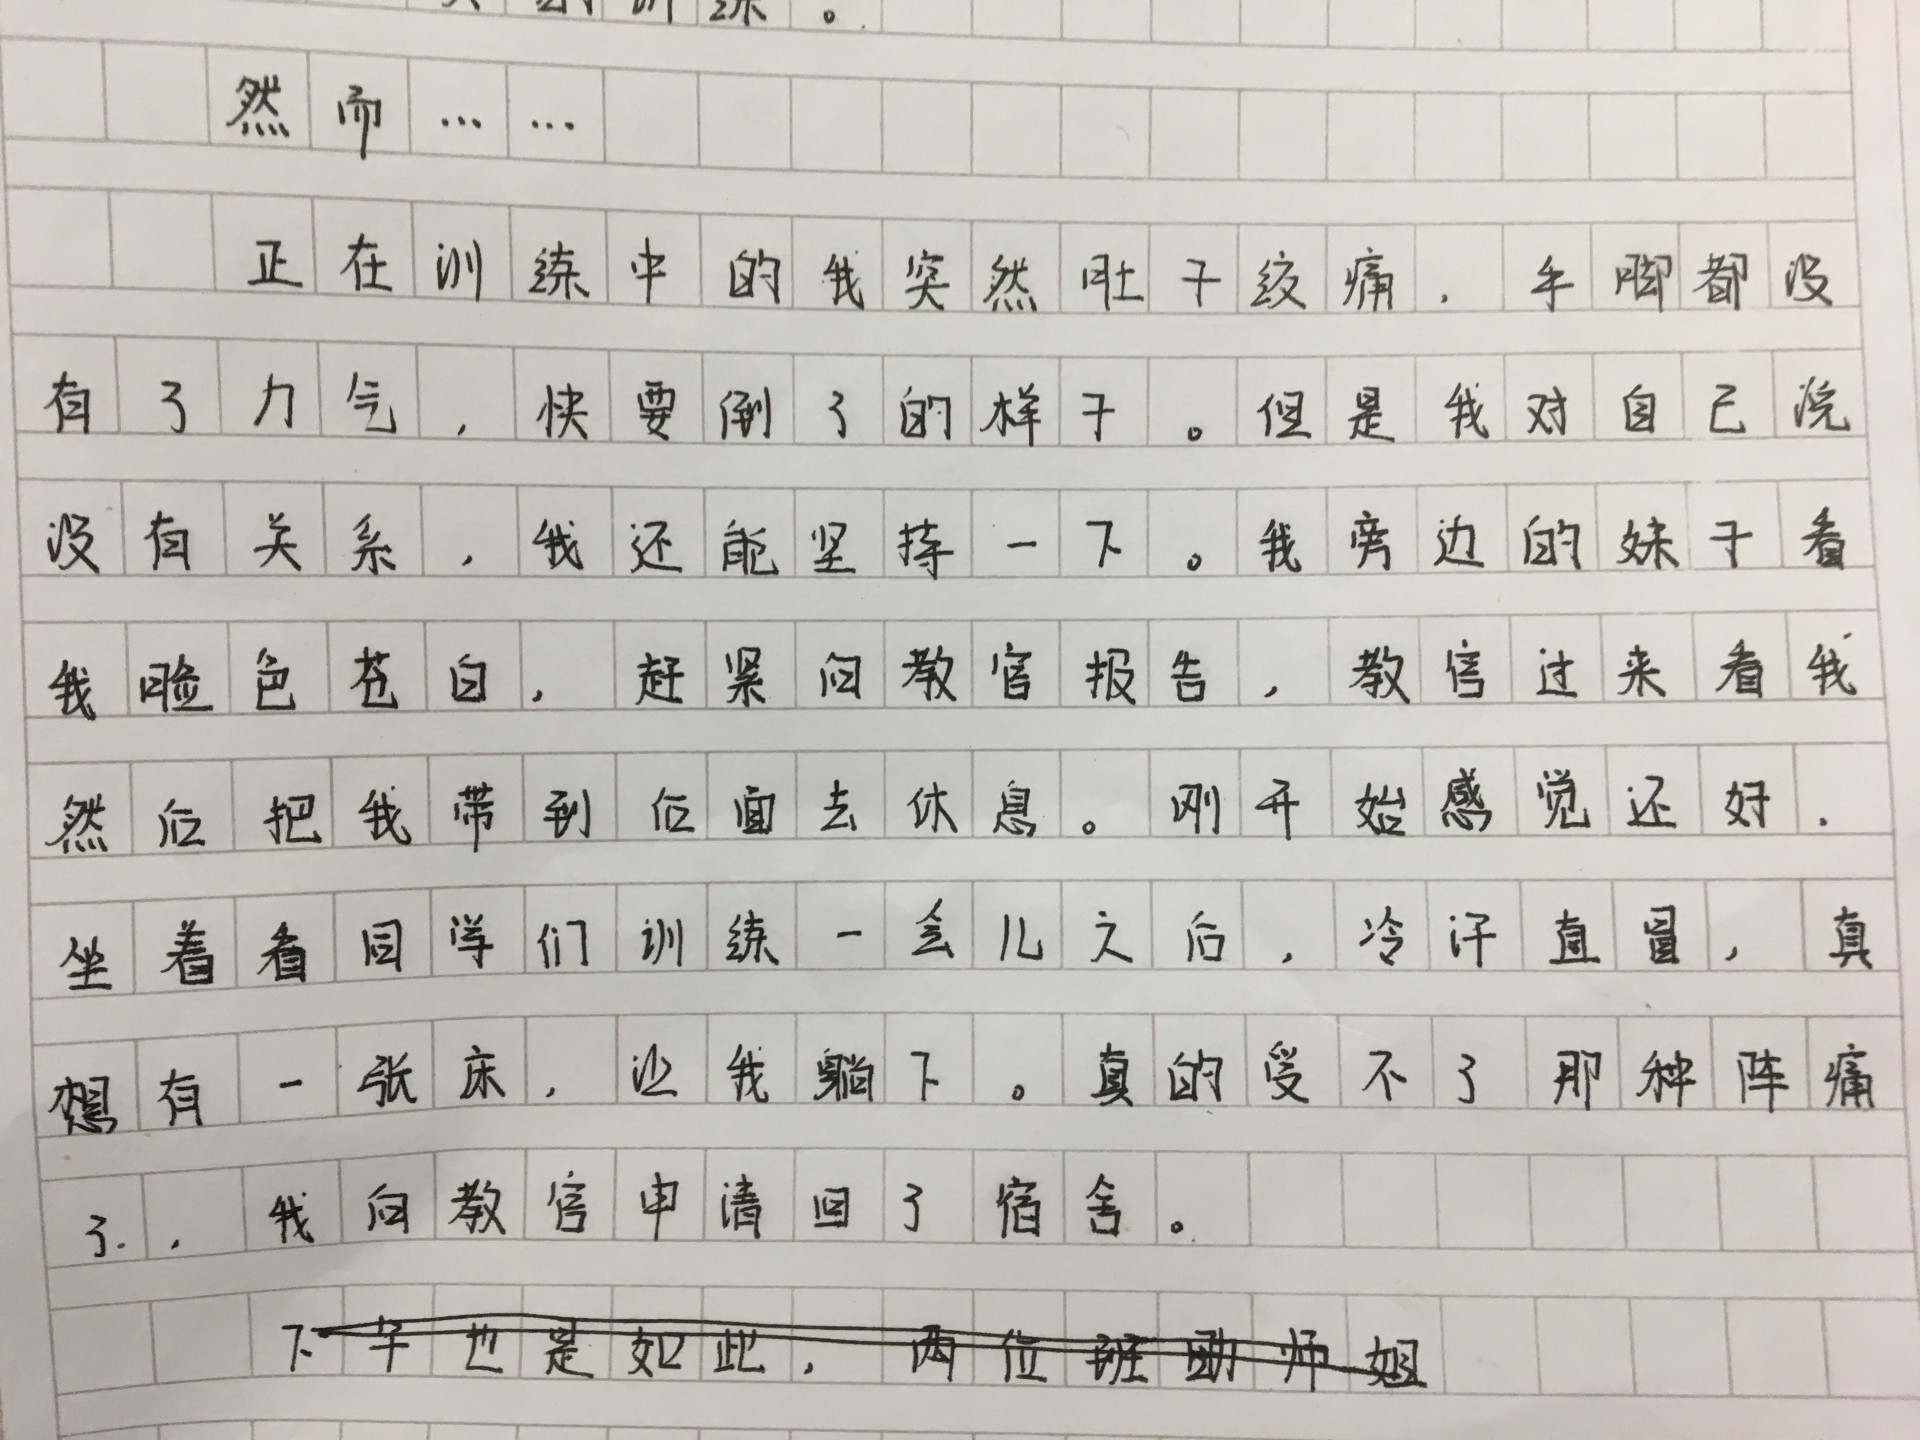 训练。
然而……
正在训练中的我突然肚子绞痛，手脚都没
有了力气，快要倒了的样子。但是我对自己说
没有关系，我还能坚持一下。我旁边的妹子看
我脸色苍白，赶紧向教官报告，教官过来看我
然后把我带到后面去休息。刚开始感觉还好，
坐着看同学们训练一会儿之后，冷汗直冒，真
想有一张床，让我躺下。真的受不了那种阵痛
了，我向教官申请回了宿舍。
下午也是如此，两位班助师姐